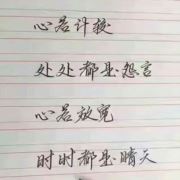 心若计较
处处都是怨言
心若放宽
时时都是晴天